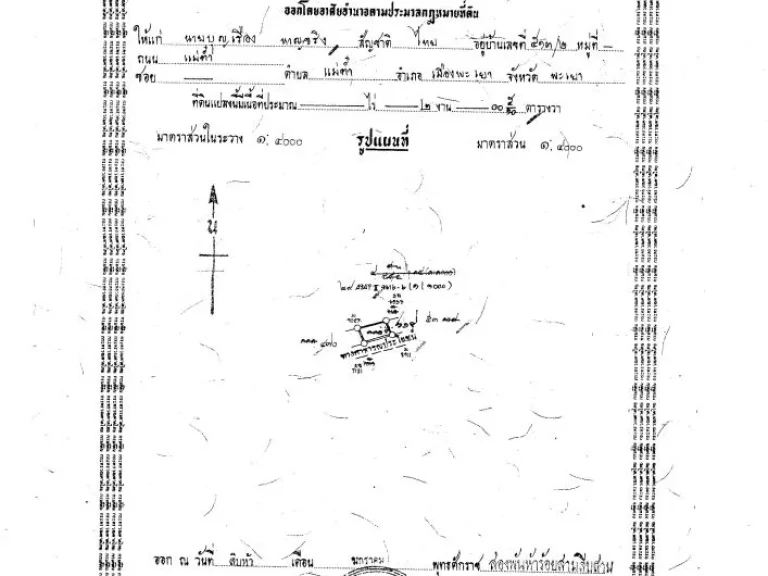 ออกโดยอาศัยอำนาจตามประมวลกฎหมายที่ดิน
ให้แก่ นายบุญเรือง หาญจริง สัญชาติ ไทย อยู่บ้านเลขที่ ๕๑๓/๒ หมู่ที่ —
ถนน แม่ต๋ำ
ซอย — ตำบล แม่ต๋ำ อำเภอ เมืองพะเยา จังหวัด พะเยา
ที่ดินแปลงนี้มีเนื้อที่ประมาณ — ไร่ — ๒ งาน — ตารางวา
มาตราส่วนในระวาง ๑: ๔๐๐๐ รูปแผนที่ มาตราส่วน ๑: ๔๐๐๐
น
ทางสาธารณประโยชน์
ออก ณ วันที่ สิบห้า เดือน มกราคม พุทธศักราช สองพันห้าร้อยสามสิบสาม